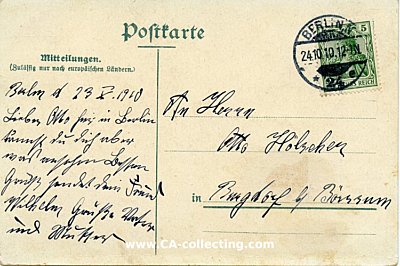 Postkarte
Mitteilungen.
(Zulässig nur nach europäischen Ländern.)
BERLIN
24.10.10.12-1N.
5
REICH
Berlin d 23 X. 1910
Lieber Otto hier in Berlin
kannst du dich aber
was ansehen Besten
Gruß sendet dein Freund
Wilhelm Grüße Vater
und Mutter
An Herrn
Otto Hölscher
in Burgdorf b/ Börssum
www.CA-collecting.com